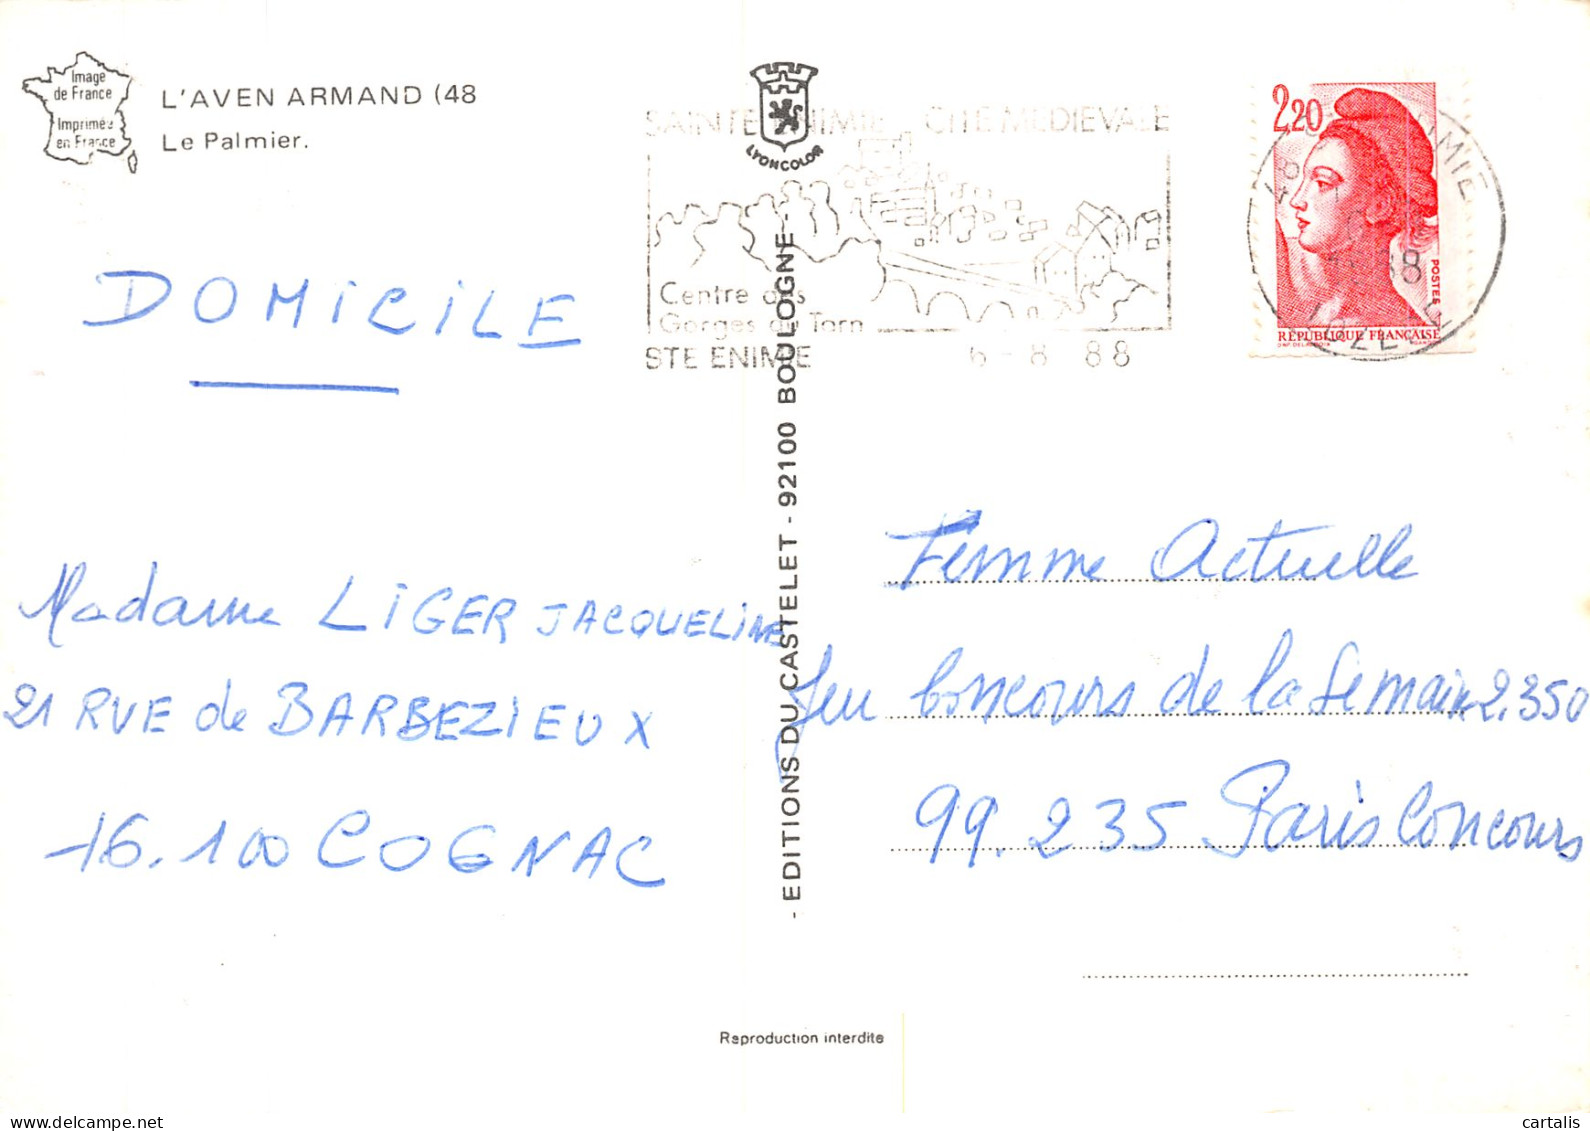 Image
de France
Imprimée
en France
L'AVEN ARMAND (48
Le Palmier.
LYONCOLOR
SAINTE ENIMIE CITE MEDIEVALE
Centre des
Gorges du Tarn
STE ENIMIE 6-8 88
2,20
POSTES
RÉPUBLIQUE FRANÇAISE
DOMICILE
Madame LIGER JACQUELINE
21 RUE de BARBEZIEUX
16.100 COGNAC
- EDITIONS DU CASTELET - 92100 BOULOGNE -
Femme Actuelle
Jeu Concours de la Semaine 2.350
99.235 Paris Concours
Reproduction interdite
cartalis